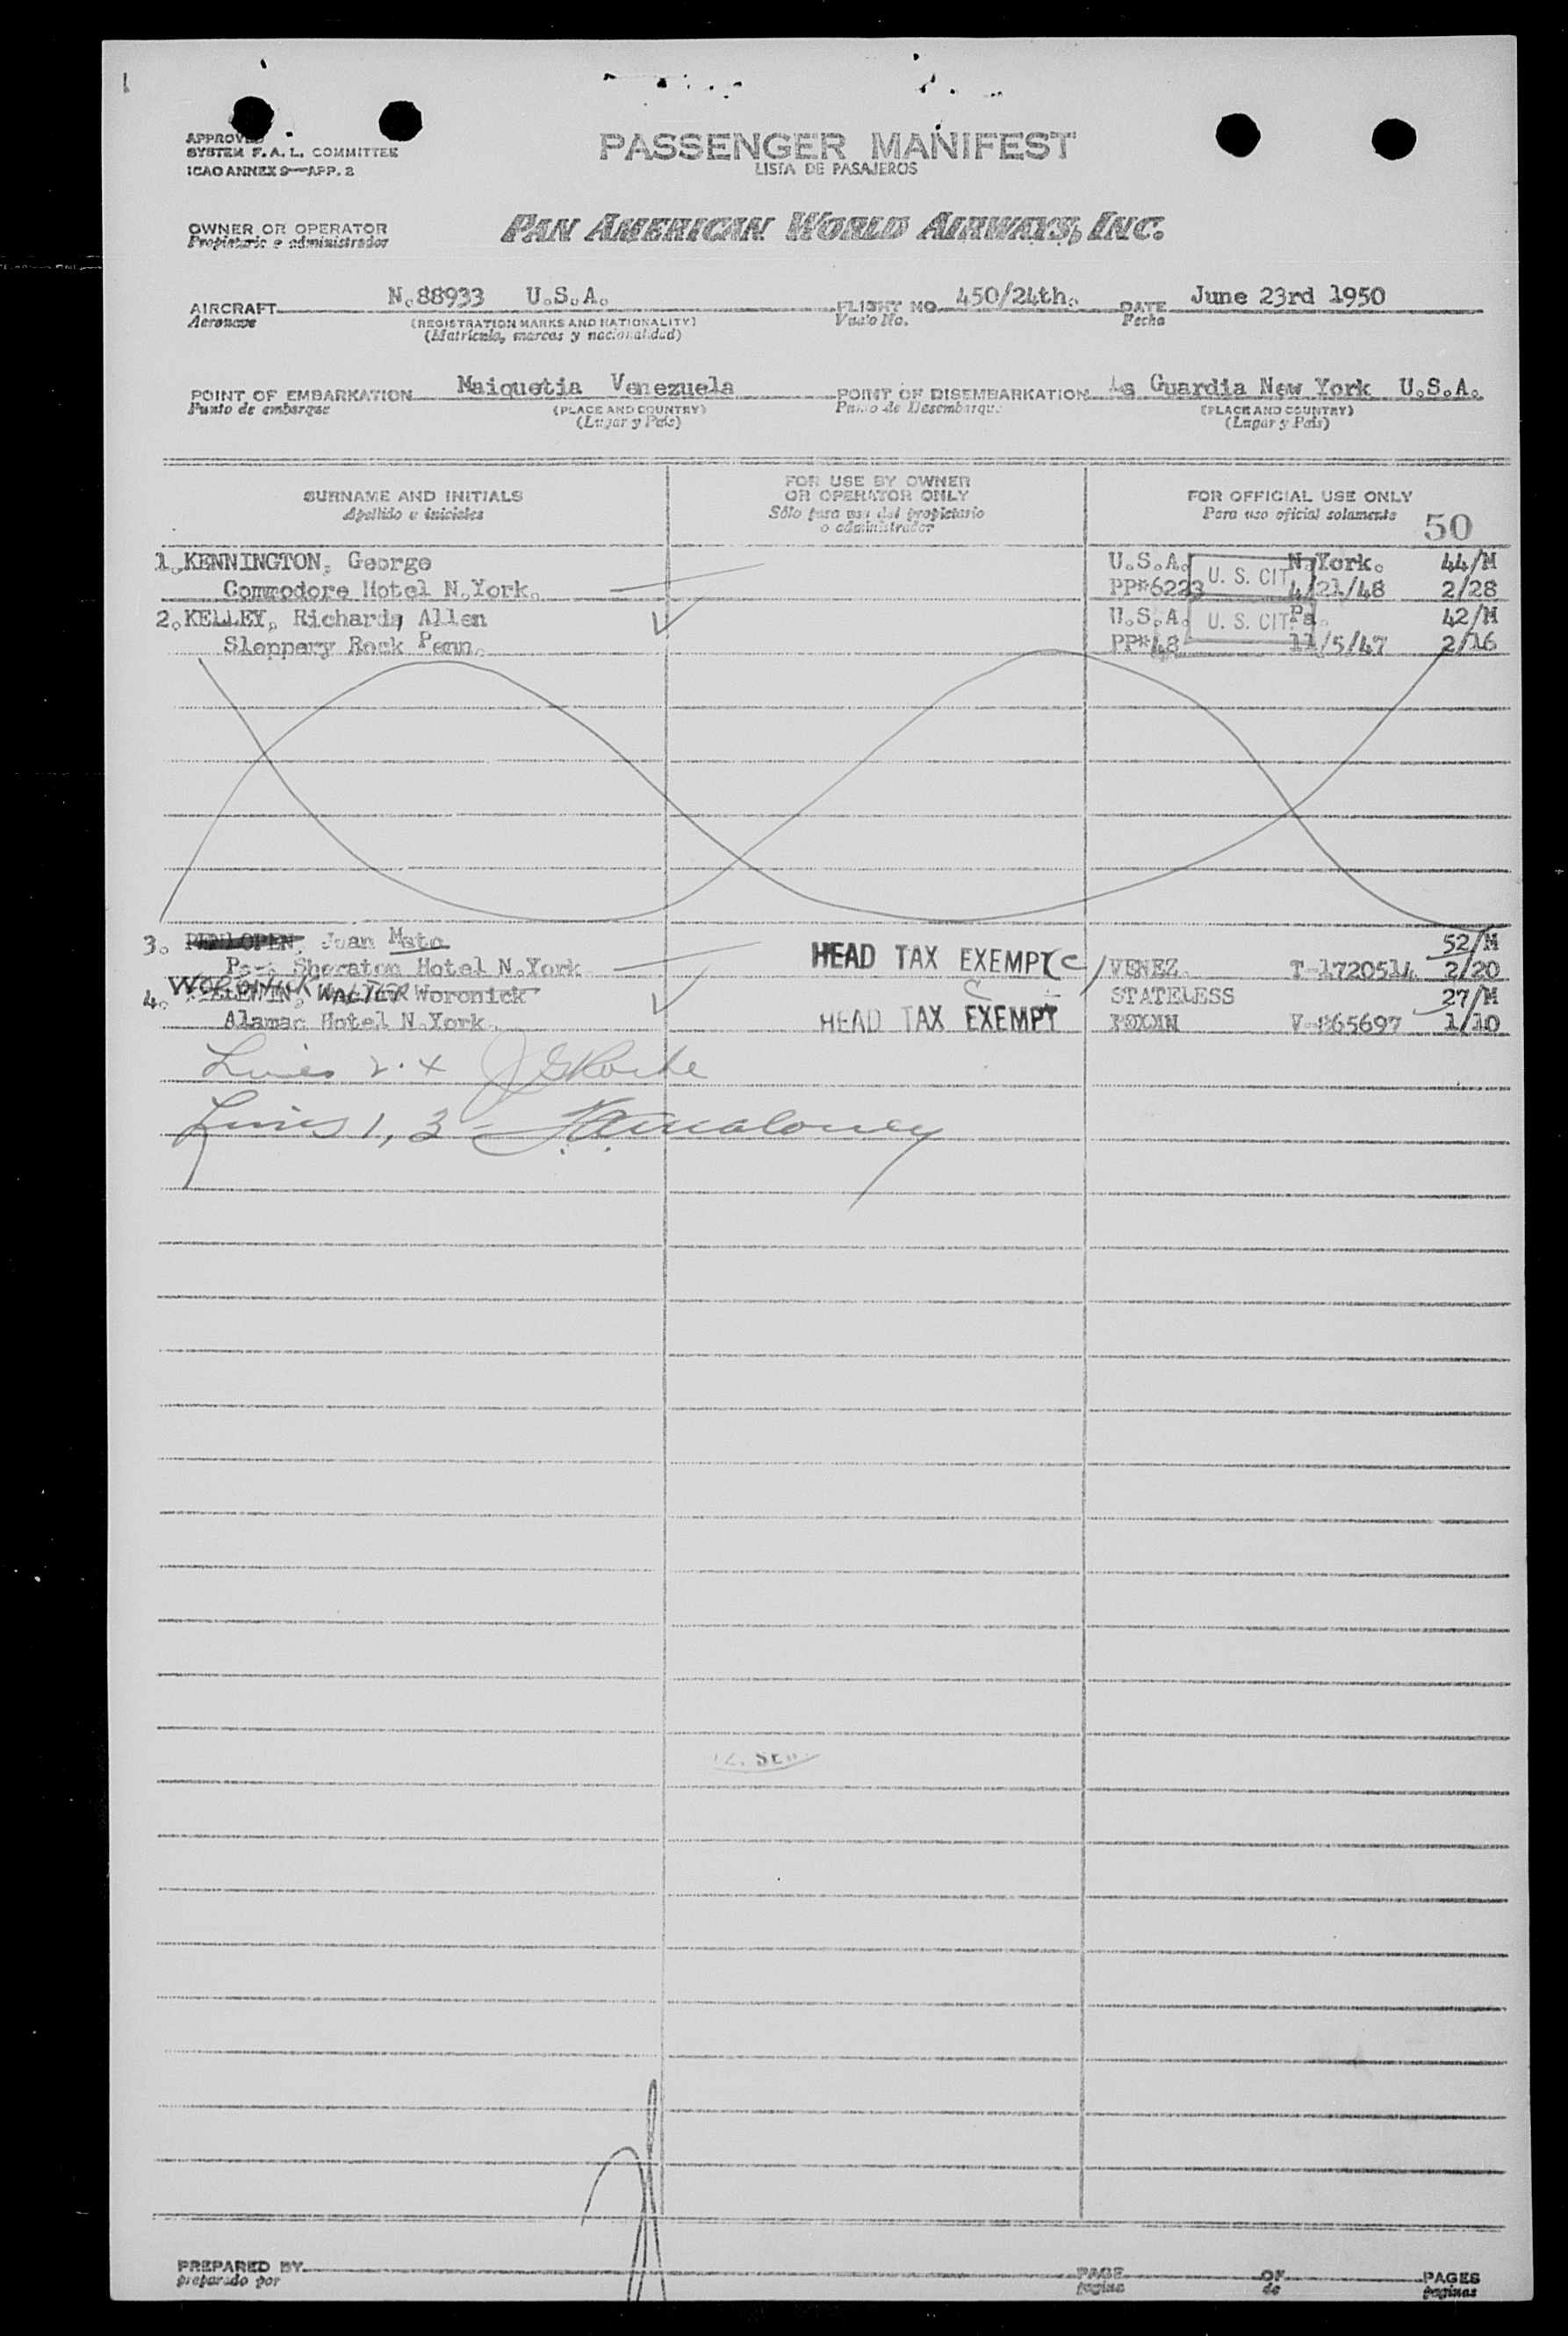 APPROVED
SYSTEM F.A.L. COMMITTEE
ICAO ANNEX 9—APP. 2
PASSENGER MANIFEST
LISTA DE PASAJEROS
OWNER OR OPERATOR
Propietario o administrador
PAN AMERICAN WORLD AIRWAYS, INC.
AIRCRAFT N.88933 U.S.A. FLIGHT NO. 450/24th. DATE June 23rd 1950
Aeronave (REGISTRATION MARKS AND NATIONALITY) Vuelo No. Fecha
(Matrícula, marcas y nacionalidad)
POINT OF EMBARKATION Maiquetia Venezuela POINT OF DISEMBARKATION La Guardia New York U.S.A.
Punto de embarque (PLACE AND COUNTRY) Punto de Desembarque (PLACE AND COUNTRY)
(Lugar y País) (Lugar y País)
SURNAME AND INITIALS
Apellido e iniciales
FOR USE BY OWNER
OR OPERATOR ONLY
Sólo para uso del propietario
o administrador
FOR OFFICIAL USE ONLY
Para uso oficial solamente
50
1.KENNINGTON, George U.S.A. N.York. 44/M
Commodore Hotel N.York. PP#6223 U. S. CIT 4/21/48 2/28
2.KELLEY, Richard, Allen U.S.A. U. S. CIT Pa. 42/M
Sloppery Rock Penn. PP#48 11/5/47 2/16
3. PENLOPEN, Juan Mato HEAD TAX EXEMPT 52/M
Sheraton Hotel N.York VENEZ. T-1720514 2/20
4. WORONICK, WALTER Woronick STATELESS 27/M
Alamac Hotel N.York. HEAD TAX EXEMPT V-865697 1/10
Lines 2.4
Lines 1, 3 - Maloney
PREPARED BY PAGE OF PAGES
preparado por pagina de paginas